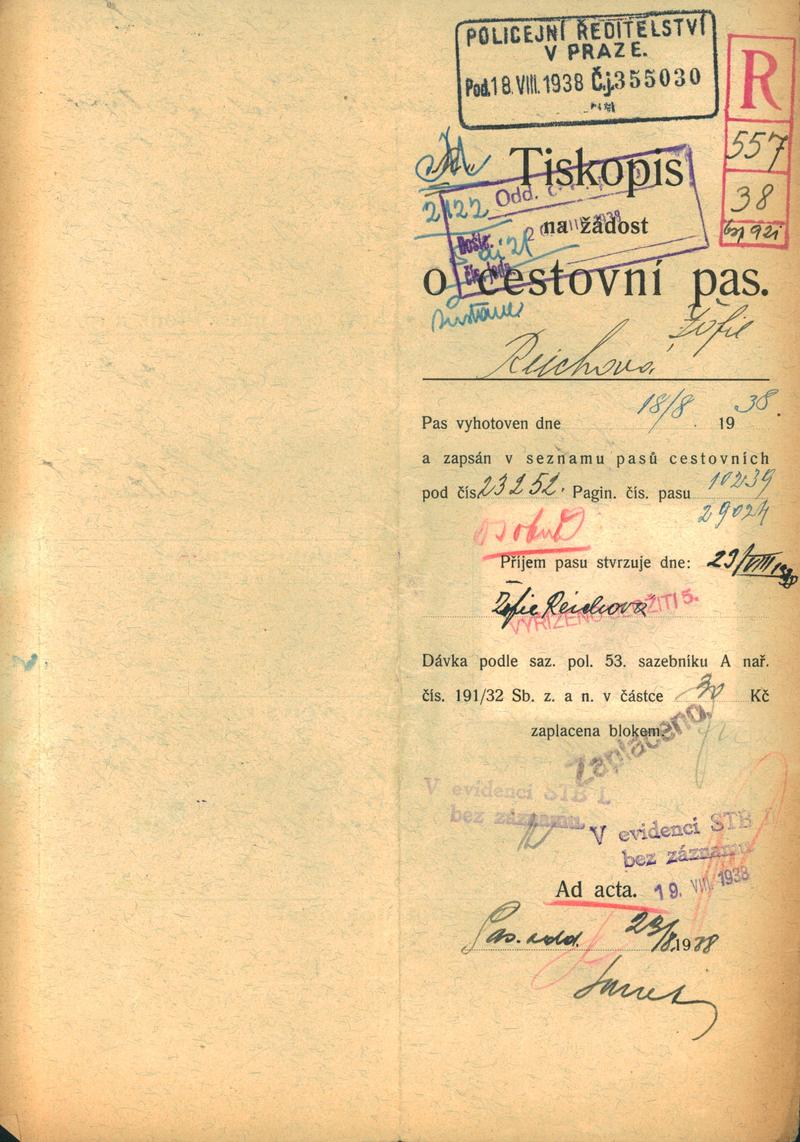 POLICEJNÍ ŘEDITELSTVÍ
V PRAZE.
Pod. 18. VIII. 1938 Č.j. 355030
R
557
38
2122
Odd.
Tiskopis
na žádost
Došlo:
o cestovní pas.
Žofie
Reichová
Pas vyhotoven dne 18/8. 1938.
a zapsán v seznamu pasů cestovních
pod čís. 23252. Pagin. čís. pasu 10239
29024
osobně
Příjem pasu stvrzuje dne: 23/VIII 1938
Žofie Reichová
VYŘÍZENO ULOŽITI 5.
Dávka podle saz. pol. 53. sazebníku A nař.
čís. 191/32 Sb. z. a n. v částce 30 Kč
zaplacena blokem.
Zaplaceno.
V evidenci STB I.
bez záznamu.
V evidenci STB
bez záznamu
Ad acta. 19. VIII. 1938
Pas. odd. 23/8. 1938